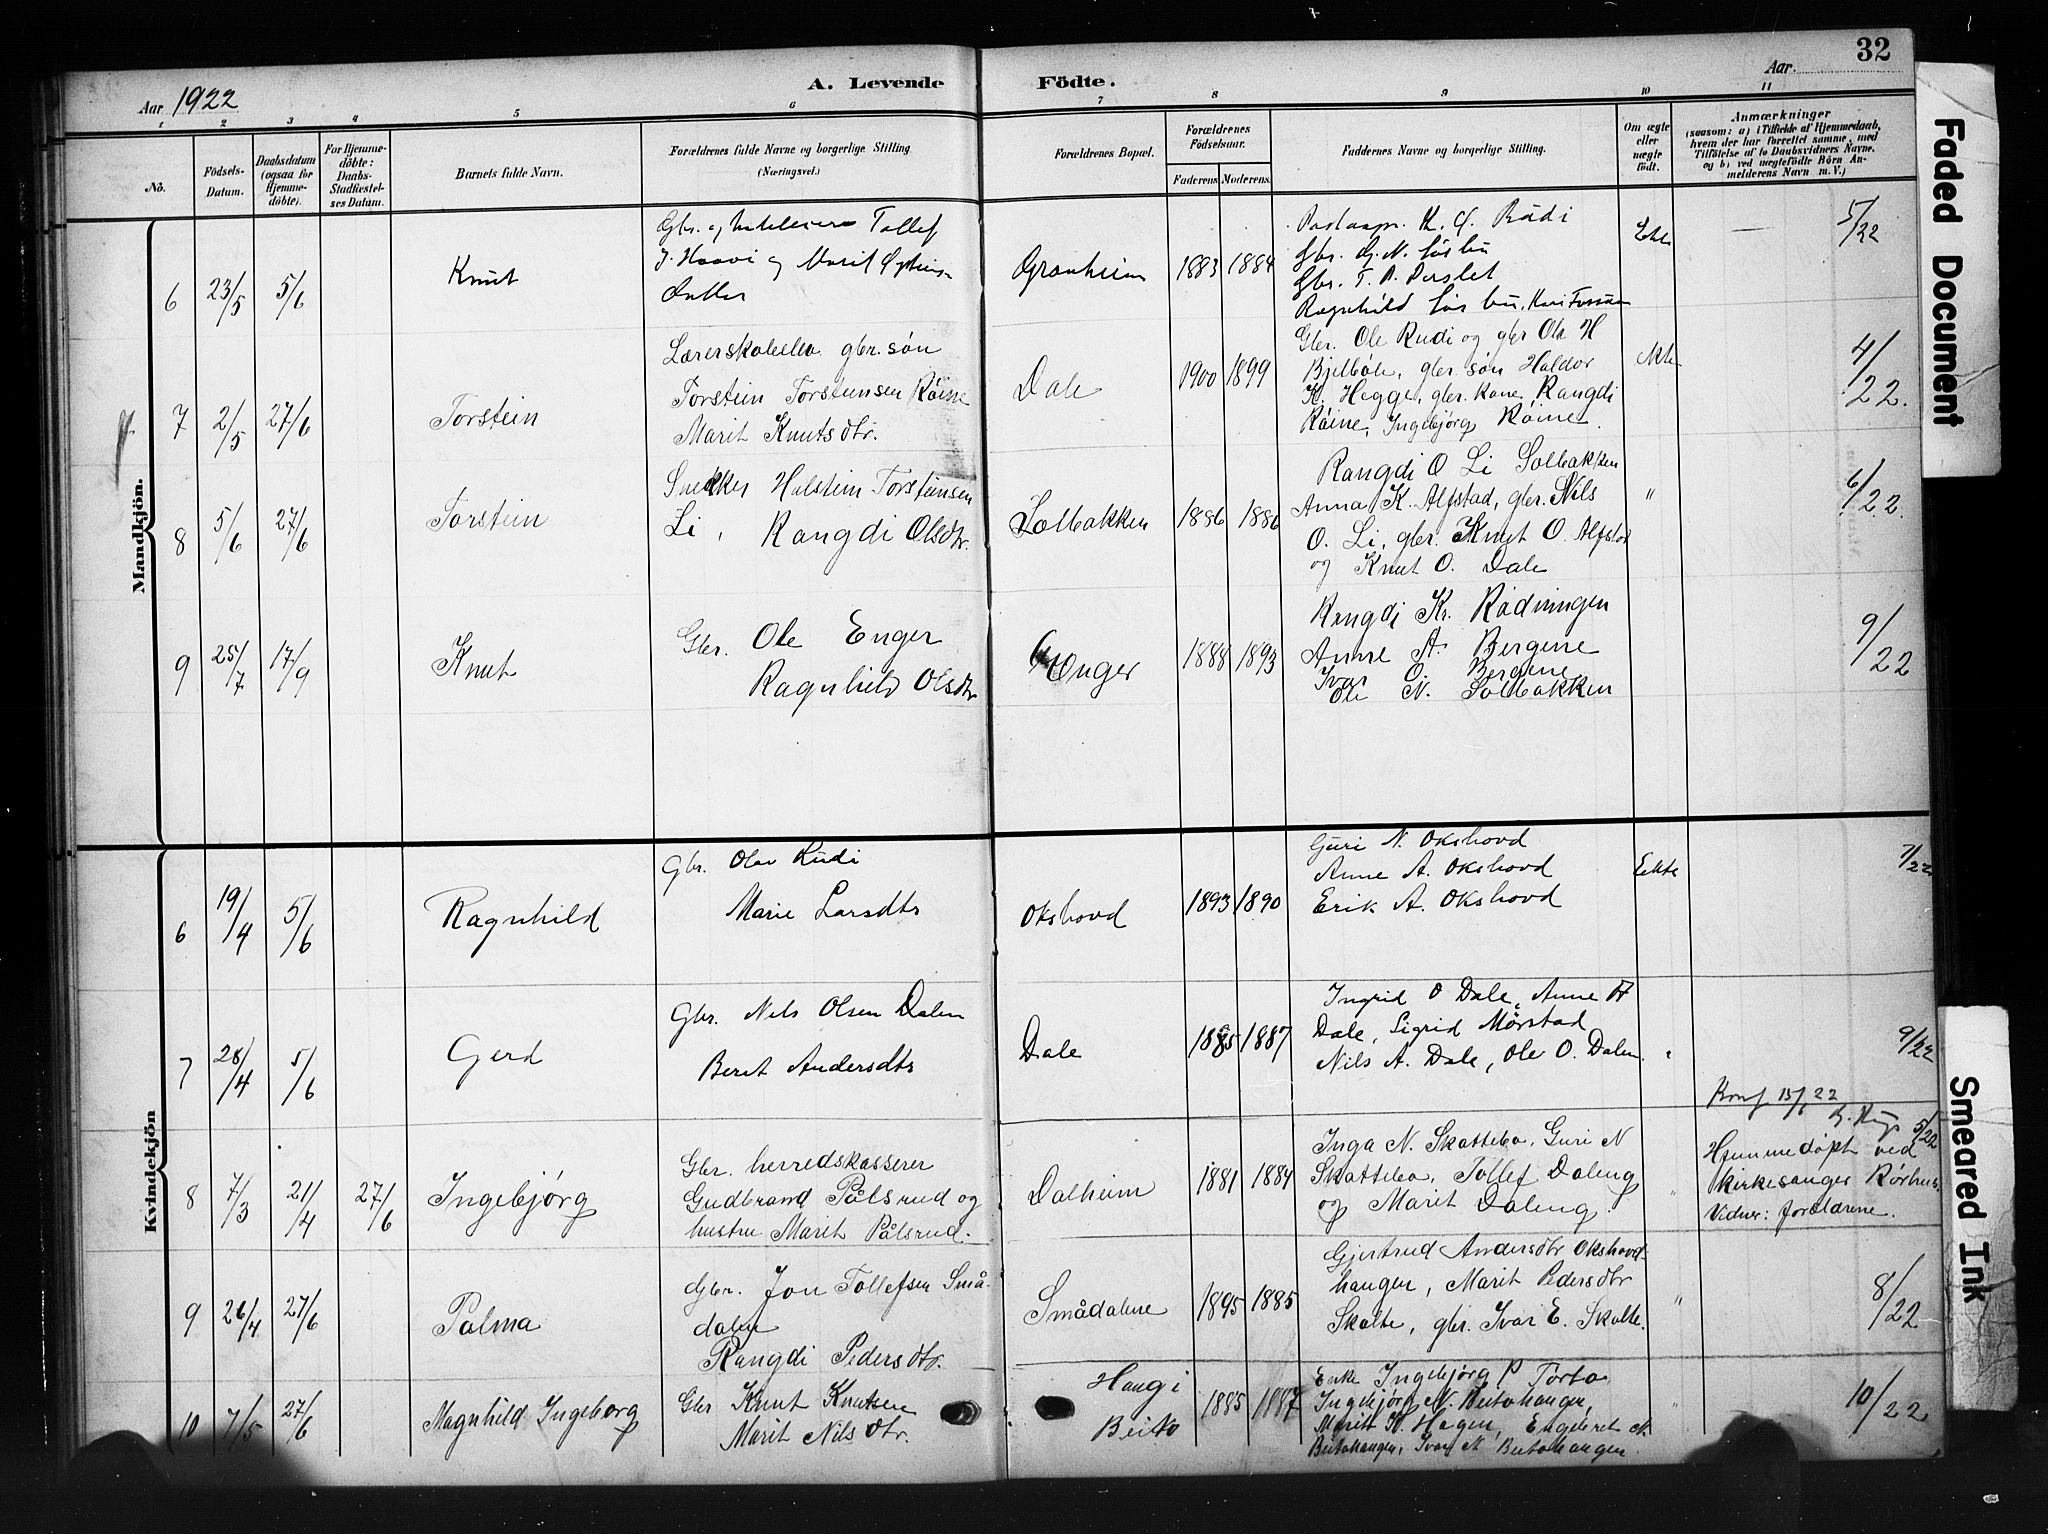 32
A. Levende Födte.
Aar 1922
Aar.
1 2 3 4 5 6 7 8 9 10 11
No.
Födsels-Datum.
Daabsdatum (ogsaa for Hjemme-döbte).
For Hjemme-döbte: Daabs-Stadfæstel-ses Datum.
Barnets fulde Navn.
Forældrenes fulde Navne og borgerlige Stilling (Næringsvei.)
Forældrenes Bopæl.
Forældrenes Födselsaar.
Faderens. Moderens.
Faddernes Navne og borgerlige Stilling.
Om ægte eller uægte födt.
Anmærkninger
(saasom: a) i Tilfælde af Hjemmedaab, hvem der har forrettet samme, med Tilföielse af to Daabsvidners Navne, og b) ved uægtefödte Börn An-melderens Navn m. V.)
Mandkjön.
6 23/5 5/6 Knut
Gbr. og Tollef
J. Hovi og Marit
Datter
Granheim 1883 1884
K. O. Rudi
Gbr.
Gbr. T.
Ragnhild
Ekte
5/22
7 2/5 27/6 Torstein
Lærerskoleelev gbr. søn
Torstein Torsteinsen Røine
Marit Knutsdtr.
Dale 1900 1899
Gbr. Ole Rudi og gbr Ole H
Bjelbøle, gbr. søn Haldor
K. Hegge, gbr. kone Rangdi
Røine, Ingebjørg Røine.
4/22.
8 5/6 27/6 Torstein
Snekker Halstein Torsteinsen
Li, Rangdi Olsdtr.
Solbakken 1886 1886
Rangdi O Li Solbakken
Anna K. Alfstad, gbr. Nils
O. Li, gbr. Knut O. Alfstad
og Knut O. Dale
"
6/22.
9 25/7 17/9 Knut
Gbr. Ole Enger
Ragnhild Olsdtr
Enger 1888 1893
Rengdi Kr. Rødningen
Anne A. Bergene
Ivar O. Bergene
Ole N. Solbakken
9/22
Kvindekjön
6 19/4 5/6 Ragnhild
Gbr. Olav Rudi
Marie Larsdtr
Okshovd 1893 1890
Guri N. Okshovd
Anne A. Okshovd
Erik A. Okshovd
Ekte
7/22
7 28/4 5/6 Gerd
Gbr. Nils Olsen Dalen
Berit Andersdtr
Dale 1885 1887
Ingrid O Dale, Anne A
Dale, Sigrid Mørstad
Nils A. Dale, Ole O. Dalen.
"
9/22
Konf 15/6 22
8 7/3 21/4 27/6 Ingebjørg
Gbr. herredskasserer
Gudbrand Pålsrud og
hustru Marit Pålsrud.
Dalheim 1881 1884
Inga N. Skattebo, Guri N
Skattebo, Tollef Daleng
og Marit Daleng.
"
5/22
Hjemmedøpt ved
kirkesanger Rørhus.
Vidner: forældrene.
9 26/4 27/6 Palma
Gbr. Jon Tollefsen Små-
dalen
Rangdi Pedersdtr.
Smådalene 1895 1885
Gjertrud Andersdtr Okshovd-
haugen, Marit Pedersdtr
Skolte, gbr. Ivar E. Skolte.
"
8/22
10 7/5 27/6 Magnhild Ingeborg
Gbr Knut Knutsen
Marit Nilsdtr.
Haug i
Beito
1885 1887
Enke Ingebjørg P
Ingebjørg N. Beitohaugen,
Marit K. Hagen, Engebret N.
Beitohaugen, Ivar N Beitohaugen.
"
10/22
Faded Document
Smeared Ink